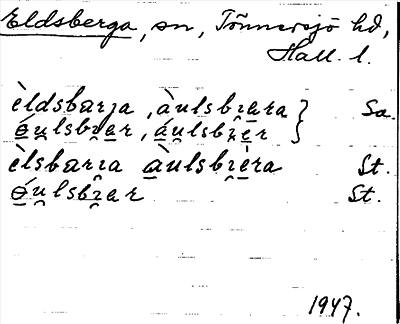 Eldsberga, sn, Tönnersjö hd,
Hall. l.
èldsbarja, àulsbrara } Sa.
éulsbrer, áulsbrer
èlsbarra àulsbrèra St.
éulsbrar St.
1947.